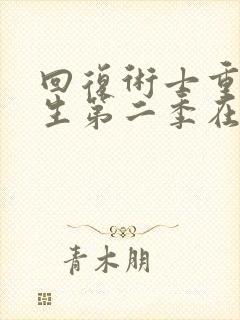 回復術士重
生第二季在
青木朋